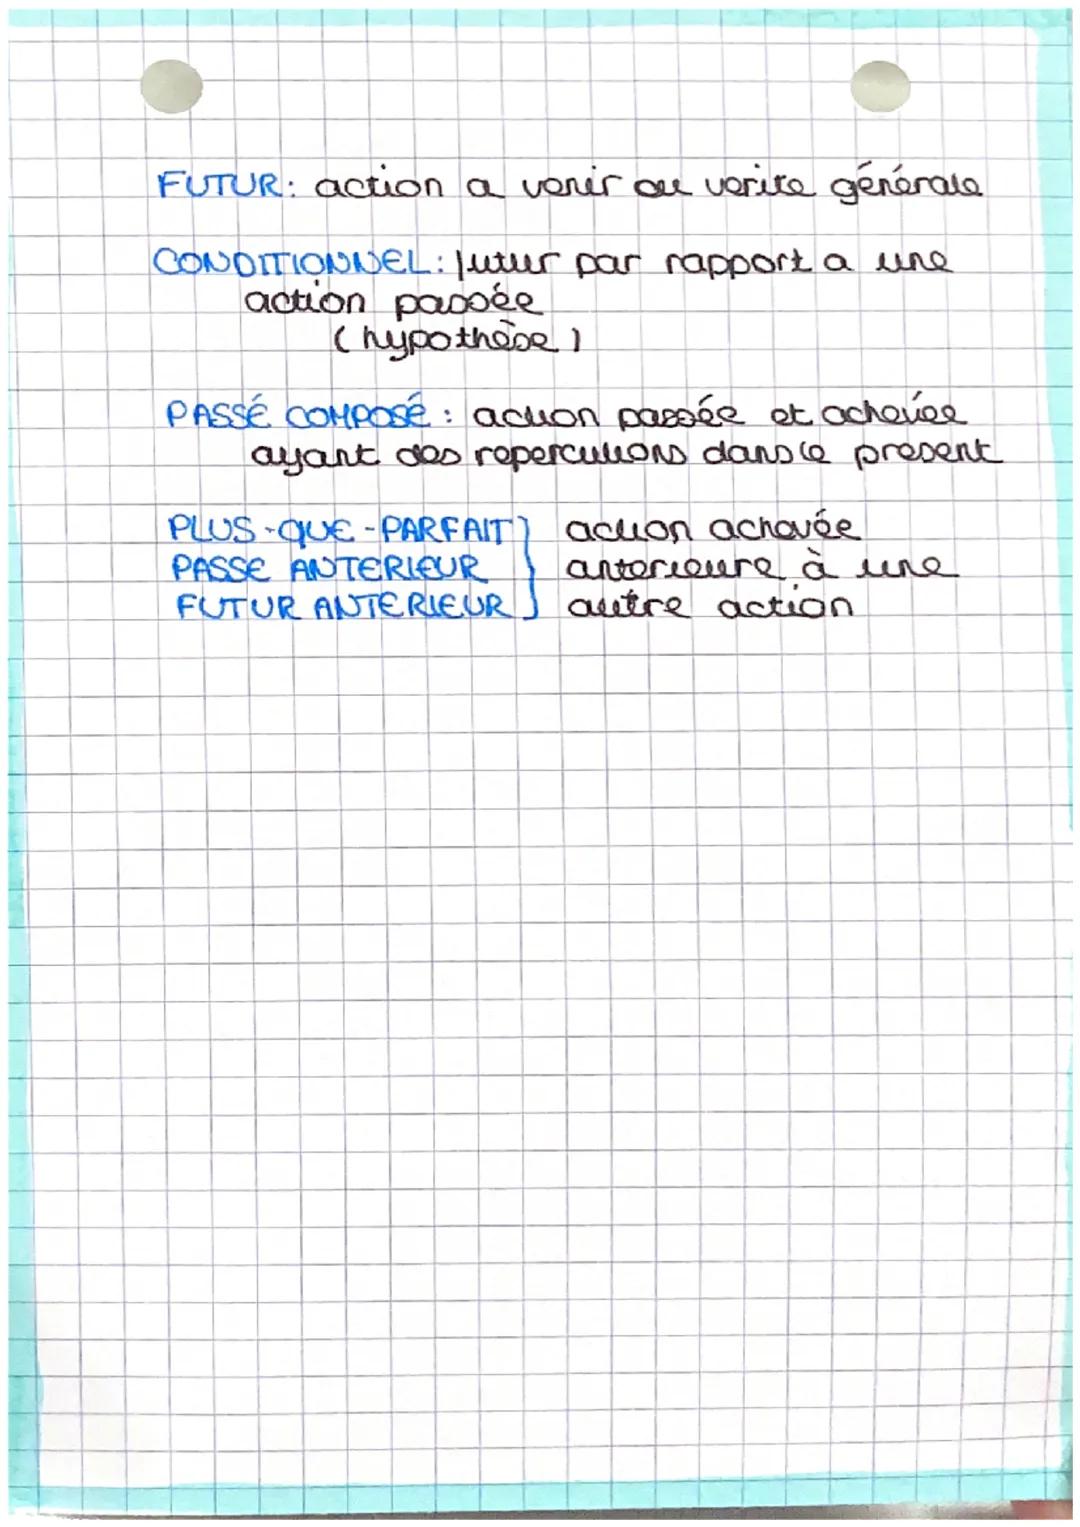 FUTUR: action a venir ou verite générale
CONDITIONNEL: futur par rapport a une
action passée
(hypothèse)
PASSÉ COMPOSÉ : action passée et achevée
ayant des repercussions dans le present
PLUS-QUE-PARFAIT } action achevée
PASSE ANTERIEUR } anterieure à une
FUTUR ANTERIEUR } autre action